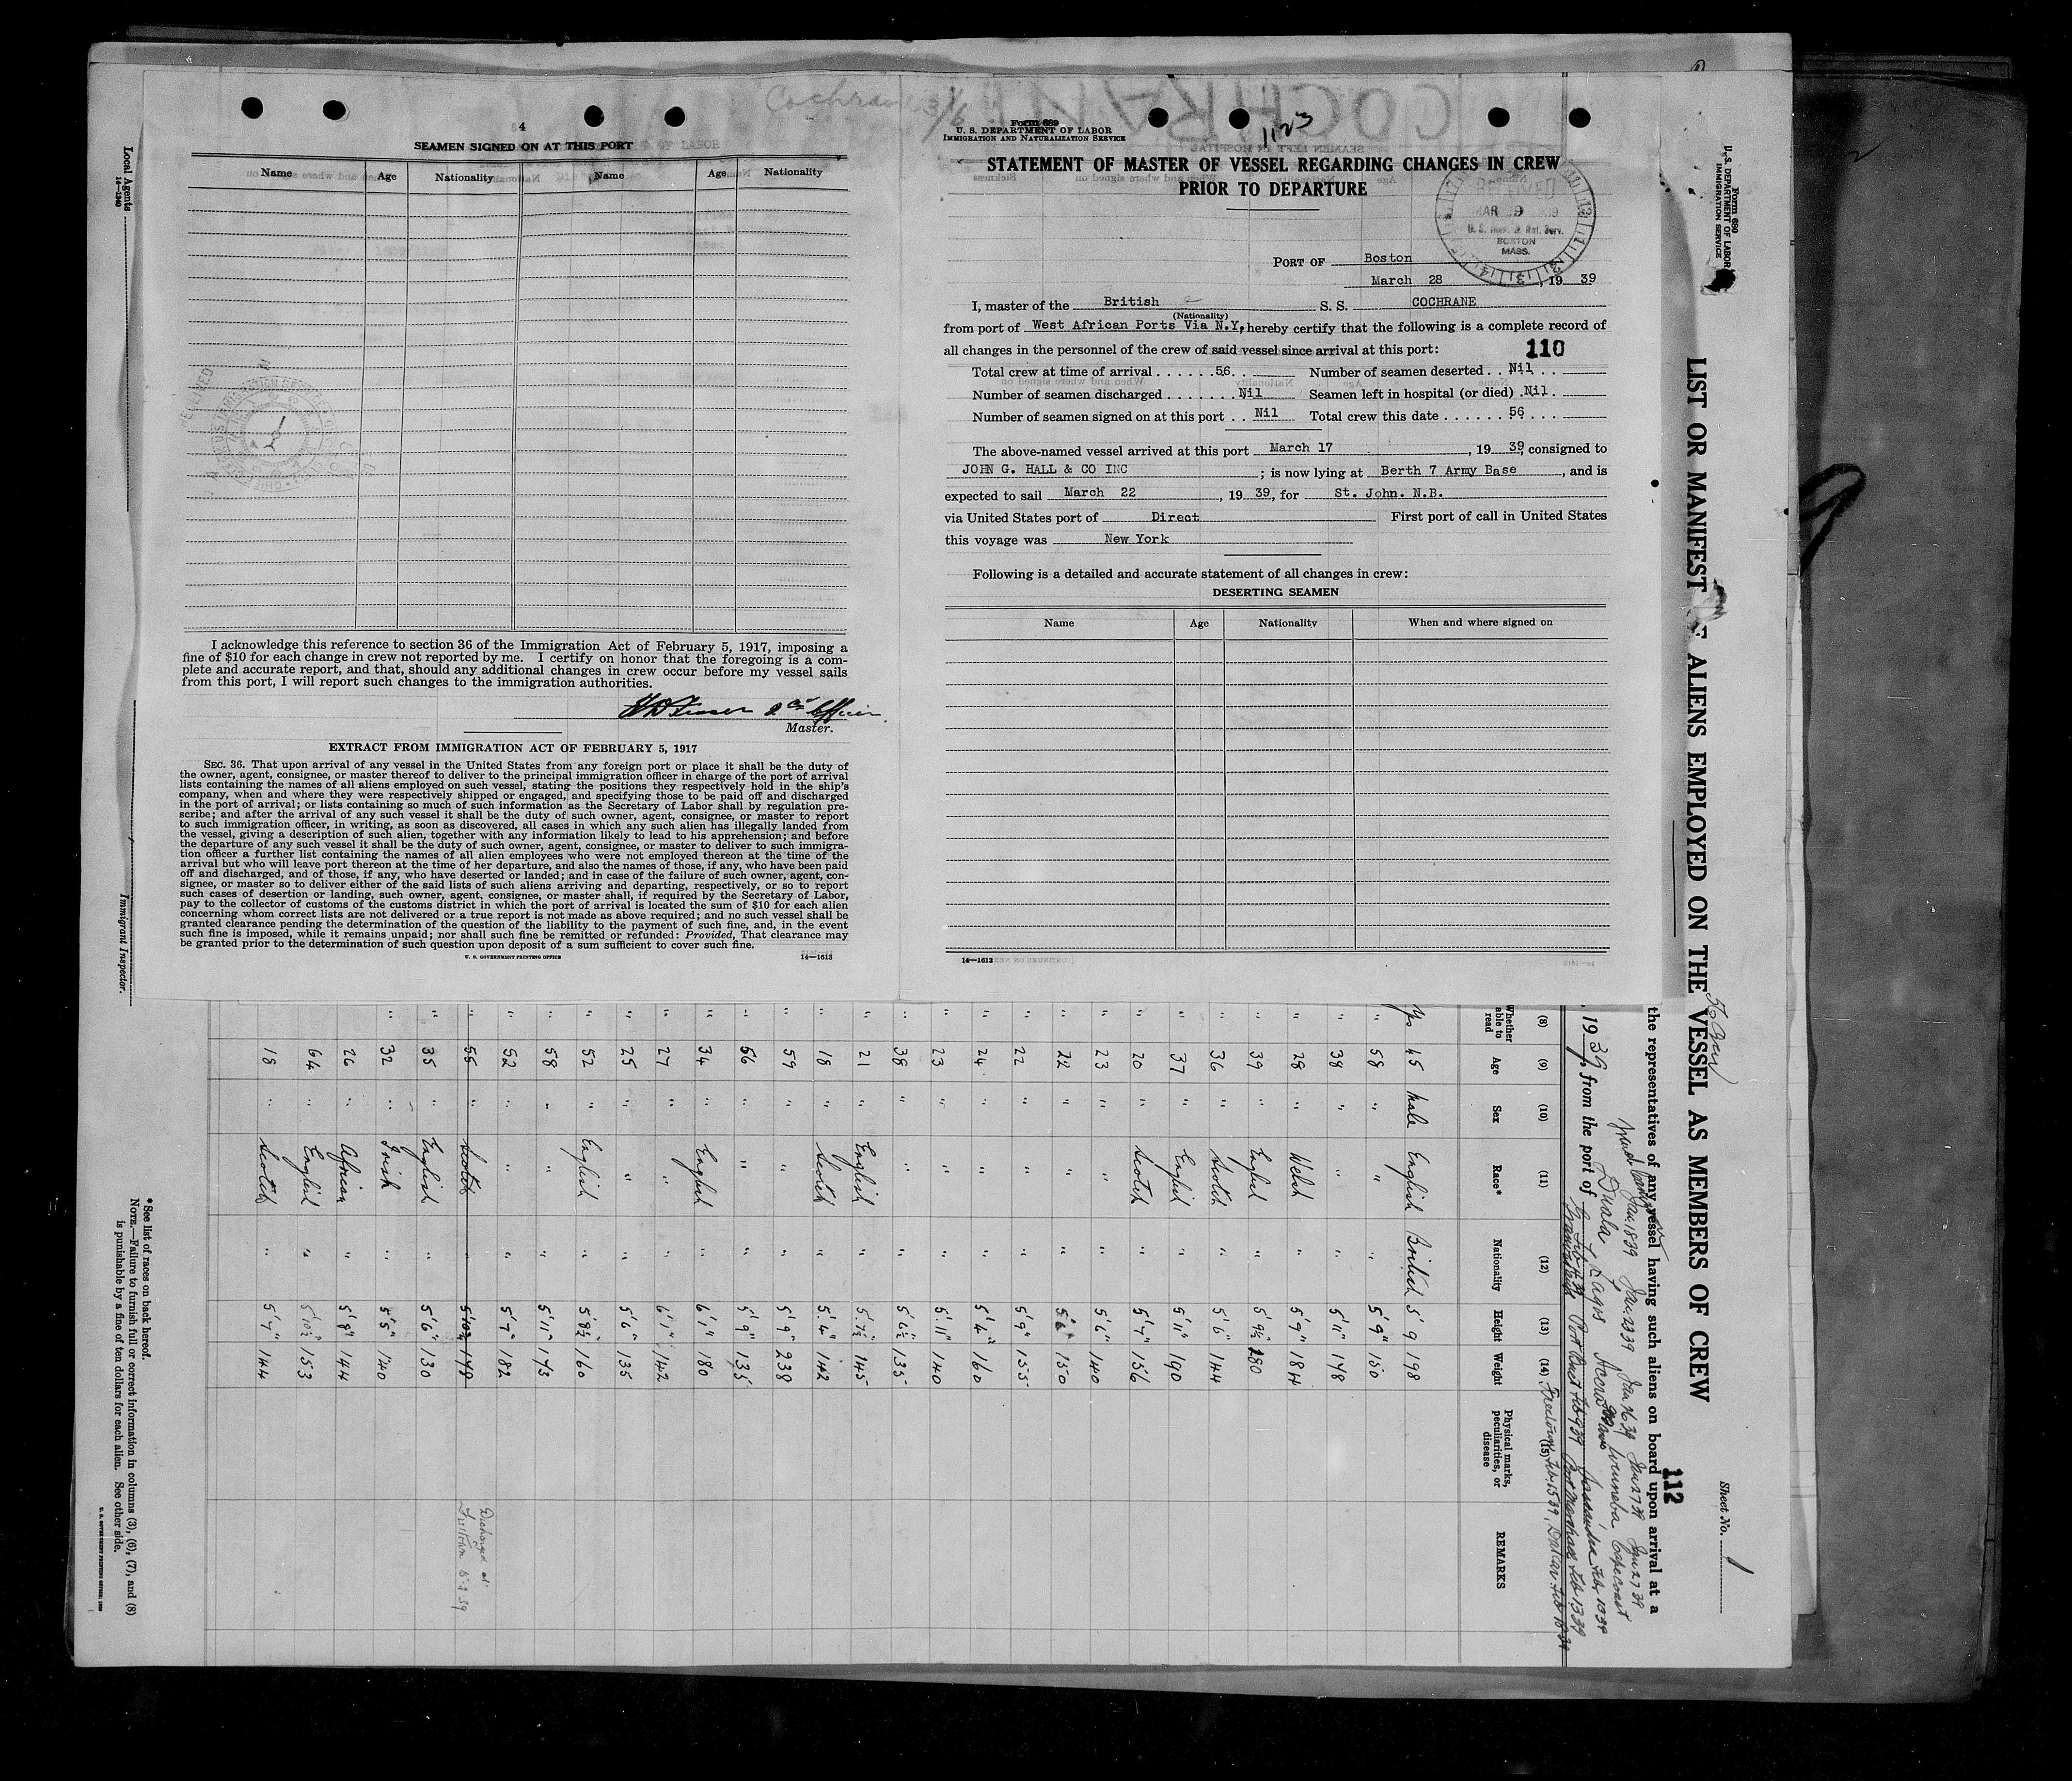 4
SEAMEN SIGNED ON AT THIS PORT
Name Age Nationality Name Age Nationality
I acknowledge this reference to section 36 of the Immigration Act of February 5, 1917, imposing a
fine of $10 for each change in crew not reported by me. I certify on honor that the foregoing is a com-
plete and accurate report, and that, should any additional changes in crew occur before my vessel sails
from this port, I will report such changes to the immigration authorities.
Master.
EXTRACT FROM IMMIGRATION ACT OF FEBRUARY 5, 1917
SEC. 36. That upon arrival of any vessel in the United States from any foreign port or place it shall be the duty of
the owner, agent, consignee, or master thereof to deliver to the principal immigration officer in charge of the port of arrival
lists containing the names of all aliens employed on such vessel, stating the positions they respectively hold in the ship's
company, when and where they were respectively shipped or engaged, and specifying those to be paid off and discharged
in the port of arrival; or lists containing so much of such information as the Secretary of Labor shall by regulation pre-
scribe; and after the arrival of any such vessel it shall be the duty of such owner, agent, consignee, or master to report
to such immigration officer, in writing, as soon as discovered, all cases in which any such alien has illegally landed from
the vessel, giving a description of such alien, together with any information likely to lead to his apprehension; and before
the departure of any such vessel it shall be the duty of such owner, agent, consignee, or master to deliver to such immigra-
tion officer a further list containing the names of all alien employees who were not employed thereon at the time of the
arrival but who will leave port thereon at the time of her departure, and also the names of those, if any, who have been paid
off and discharged, and of those, if any, who have deserted or landed; and in case of the failure of such owner, agent, con-
signee, or master so to deliver either of the said lists of such aliens arriving and departing, respectively, or so to report
such cases of desertion or landing, such owner, agent, consignee, or master shall, if required by the Secretary of Labor,
pay to the collector of customs of the customs district in which the port of arrival is located the sum of $10 for each alien
concerning whom correct lists are not delivered or a true report is not made as above required; and no such vessel shall be
granted clearance pending the determination of the question of the liability to the payment of such fine, and, in the event
such fine is imposed, while it remains unpaid; nor shall such fine be remitted or refunded: Provided, That clearance may
be granted prior to the determination of such question upon deposit of a sum sufficient to cover such fine.
U. S. GOVERNMENT PRINTING OFFICE 14—1613
Form 689
U. S. DEPARTMENT OF LABOR
IMMIGRATION AND NATURALIZATION SERVICE
1123
STATEMENT OF MASTER OF VESSEL REGARDING CHANGES IN CREW
PRIOR TO DEPARTURE
RECEIVED
U. S. Imm. & Nat. Serv.
BOSTON
MASS.
PORT OF Boston
March 28, 19 39
I, master of the British S. S. COCHRANE
(Nationality)
from port of West African Ports Via N.Y, hereby certify that the following is a complete record of
all changes in the personnel of the crew of said vessel since arrival at this port: 110
Total crew at time of arrival . . . . . . 56 . . Number of seamen deserted . . Nil . . .
Number of seamen discharged . . . . . . . Nil Seamen left in hospital (or died) . Nil .
Number of seamen signed on at this port . . Nil Total crew this date . . . . . . 56 . . .
The above-named vessel arrived at this port March 17, 19 39, consigned to
JOHN G. HALL & CO INC ; is now lying at Berth 7 Army Base, and is
expected to sail March 22, 19 39, for St. John. N.B.
via United States port of Direct First port of call in United States
this voyage was New York
Following is a detailed and accurate statement of all changes in crew:
DESERTING SEAMEN
Name Age Nationality When and where signed on
14—1613
Form 689
U. S. DEPARTMENT OF LABOR
IMMIGRATION SERVICE
Sheet No. 1
LIST OR MANIFEST ALIENS EMPLOYED ON THE VESSEL AS MEMBERS OF CREW
112
the representatives of any vessel having such aliens on board upon arrival at a
, 1939, from the port of Duala Lagos Accra Winneba
(8) (9) (10) (11) (12) (13) (14) (15)
Whether able to read Age Sex Race* Nationality Height Weight Physical marks, peculiarities, or disease REMARKS
Yes 45 Male English British 5 9 198
" 58 " " " 5'9" 150
" 38 " " " 5'11" 178
" 28 " Welsh " 5'9" 184
" 39 " English " 5'9½ 180
" 36 " Scotch " 5'6" 144
" 37 " English " 5'11" 190
" 20 " Scotch " 5'7" 156
" 23 " " " 5'6" 140
" 22 " " " 5'6" 150
" 22 " " " 5'9" 155
" 24 " " " 5'4" 160
" 23 " " " 5'11" 140
" 38 " " " 5'6½" 135
" 21 " English " 5'7½" 145
" 18 " Scotch " 5'4" 142
" 59 " " " 5'9" 238
" 56 " " " 5'9" 135
" 34 " English " 6'1" 180
" 27 " " " 6'1" 142
" 25 " " " 5'6" 135
" 52 " English " 5'8½" 160
" 58 " " " 5'11" 173
" 52 " " " 5'7" 182
" 55 " Scotch " 5'10¾ 179 Discharged at
" 35 " English " 5'6" 130
" 32 " Irish " 5'5" 140
26 " African " 5'8" 144
64 " English " 5'10½" 153
18 " Scotch " 5'7" 144
*See list of races on back hereof.
NOTE.—Failure to furnish full or correct information in columns (3), (6), (7), and (8)
is punishable by a fine of ten dollars for each alien. See other side.
Local Agents
14—1240
Immigrant Inspector.